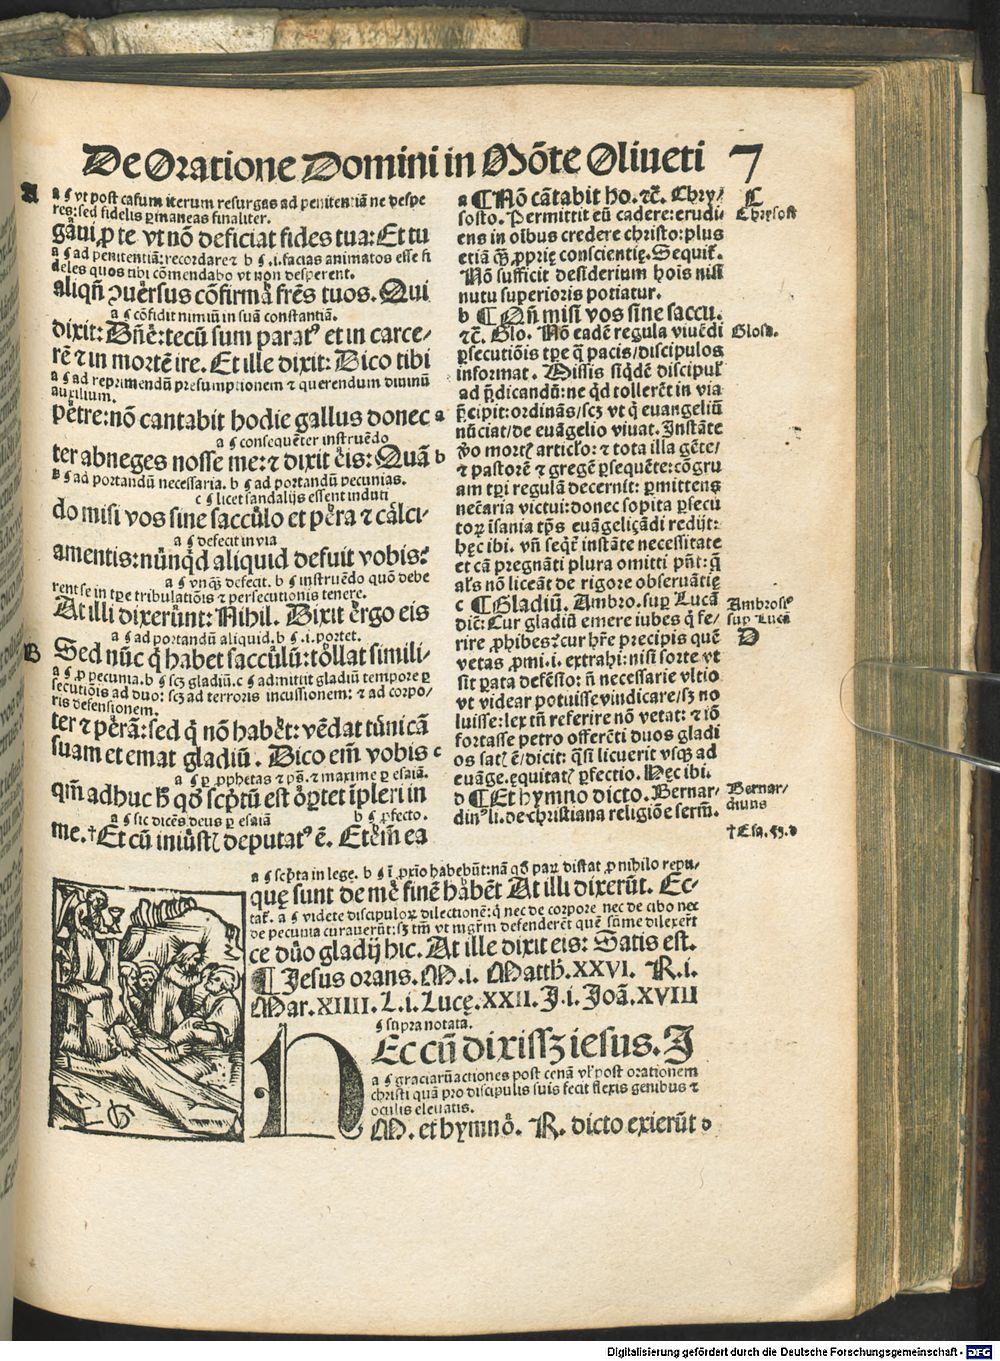 De Oratione Domini in Mōte Oliueti 7
A
a ꝗ vt post casum iterum resurgas ad penitentiā ne despe
res: sed fidelis ꝑmaneas finaliter.
gaui ꝓ te vt nō deficiat fides tua: Et tu
a ꝗ ad penitentiā: recordare ⁊ b ꝗ .i. facias animatos esse fi
deles quos tibi cōmendabo vt non desperent.
aliqñ ꝯuersus cōfirma frēs tuos. Qui
a ꝗ cōfidit nimiū in suā constantiā.
dixit: Dñe: tecū sum paratꝰ et in carce-
rē ⁊ in mortē ire. Et ille dixit: Dico tibi
a ꝗ ad reprimendū presumptionem ⁊ querendum diuinū
auxilium.
petre: nō cantabit hodie gallus donec a
a ꝗ consequēter instruēdo
ter abneges nosse me: ⁊ dixit eis: Quā b
ꝗ ad portandū necessaria. b ꝗ ad portandū pecunias.
c ꝗ licet sandalijs essent induti
do misi vos sine sacculo et pera ⁊ calci-
a ꝗ defecit in via
amentis: nūnqd aliquid defuit vobis?
a ꝗ vnqꝫ defecit. b ꝗ instruēdo quō debe
rent se in tꝑe tribulatiōis ⁊ persecutionis tenere.
At illi dixerūnt: Nihil. Dixit ergo eis
a ꝗ ad portandū aliquid. b ꝗ .i. portet.
B
Sed nūc q habet sacculū: tollat simili-
a ꝗ ꝓ pecunia. b ꝗ scꝫ gladiū. c ꝗ admittit gladiū tempore ꝑ
secutiōis ad duo: scꝫ ad terroris incussionem: ⁊ ad corpo/
ris defensionem.
ter ⁊ perā: sed q nō habēt: vēdat tūnicā
suam et emat gladiū. Dico em̄ vobis c
a ꝗ ꝑ ꝓphetas ⁊ pš. ⁊ maxime ꝑ esaiā.
qm̄ adhuc h̄ qd̄ scp̄tū est oꝑtet īpleri in
a ꝗ sic dicēs deus ꝑ esaiā b ꝗ ꝓfecto.
me. †Et cū iniustꝭ deputatꝰ ē. Etem̄ ea
a ꝗ scp̄ta in lege. b ꝗ ī ꝓxīo habebūt: nā qd̄ paꝝ distat ꝓ nihilo repu-
quę sunt de me finē habēt At illi dixerūt. Ec-
tat̄. a ꝗ videte discipuloꝝ dilectionē: q nec de corpore nec de cibo nec
de pecunia curauerūt: sꝫ tm̄ vt mgr̄m defenderēt quē sūme dilexer̄t
ce duo gladij hic. At ille dixit eis: Satis est.
¶ Jesus orans. M. i. Matth. XXVI. R. i.
Mar. XIIII. L. i. Lucę. XXII. J. i. Joā. XVIII
ꝗ supra notata.
HEc cū dixissꝫ iesus. J
a ꝗ graciarū actiones post cenā vl̄ post orationem
christi quā pro discipulis suis fecit flexis genibus ⁊
oculis eleuatis.
M. et hymno. R. dicto exierūt d
a ¶ Nō cātabit ho. ⁊c̄. Chry-
sosto. Permittit eū cadere: erudi-
ens in oībus credere christo: plus
etiā qꝫ ꝓprię conscientię. Sequit̄.
Nō sufficit desiderium hois nisi
nutu superioris potiatur.
b ¶ Qn̄ misi vos sine saccu.
⁊c̄. Glo. Nō eadē regula viuēdi
ꝑsecutiōis tꝑe q̄ pacis/discipulos
informat. Missis siqdē discipul̄
ad p̄dicandū: ne qd tollerēt in via
p̄cipit: ordinās/scꝫ vt q euangeliū
nūciat/de euāgelio viuat. Instāte
v̄o mortꝭ articľo: ⁊ tota illa gēte/
⁊ pastorē ⁊ gregē ꝑsequēte: cōgru
am tꝑi regulā decernit: ꝑmittens
nec̄aria victui: donec sopita ꝑsecu
toꝝ īsania tp̄s euāgeliçādi redijt:
hęc ibi. vn̄ seqr̄ instāte necessitate
et cā pregnāti plura omitti pn̄t: q̄
als nō liceāt de rigore obseruātię
c ¶ Gladiū. Ambro. suꝑ Lucā
dic̄: Cur gladiū emere iubes q fe/
rire ꝓhibes? cur hr̄e precipis quē
vetas ꝓmi. i. extrahi: nisi forte vt
sit ꝑata defēsio: n̄ necessarie vltio
vt videar potuisse vindicare/sꝫ no
luisse: lex tn̄ referire nō vetat: ⁊ iō
fortasse petro offerēti duos gladi
os satꝭ ē/dicit: qsi licuerit vsqꝫ ad
euāge. equitatꝭ ꝑfectio. Hęc ibi.
d ¶ Et hymno dicto. Bernar/
dinꝰ li. de christiana religiōe serm̄.
C
Chrysost
Glosa.
Ambrosꝰ
suꝑ Lucā
D
Bernar/
dinus
†Esa. 53. d
Digitalisierung gefördert durch die Deutsche Forschungsgemeinschaft - DFG